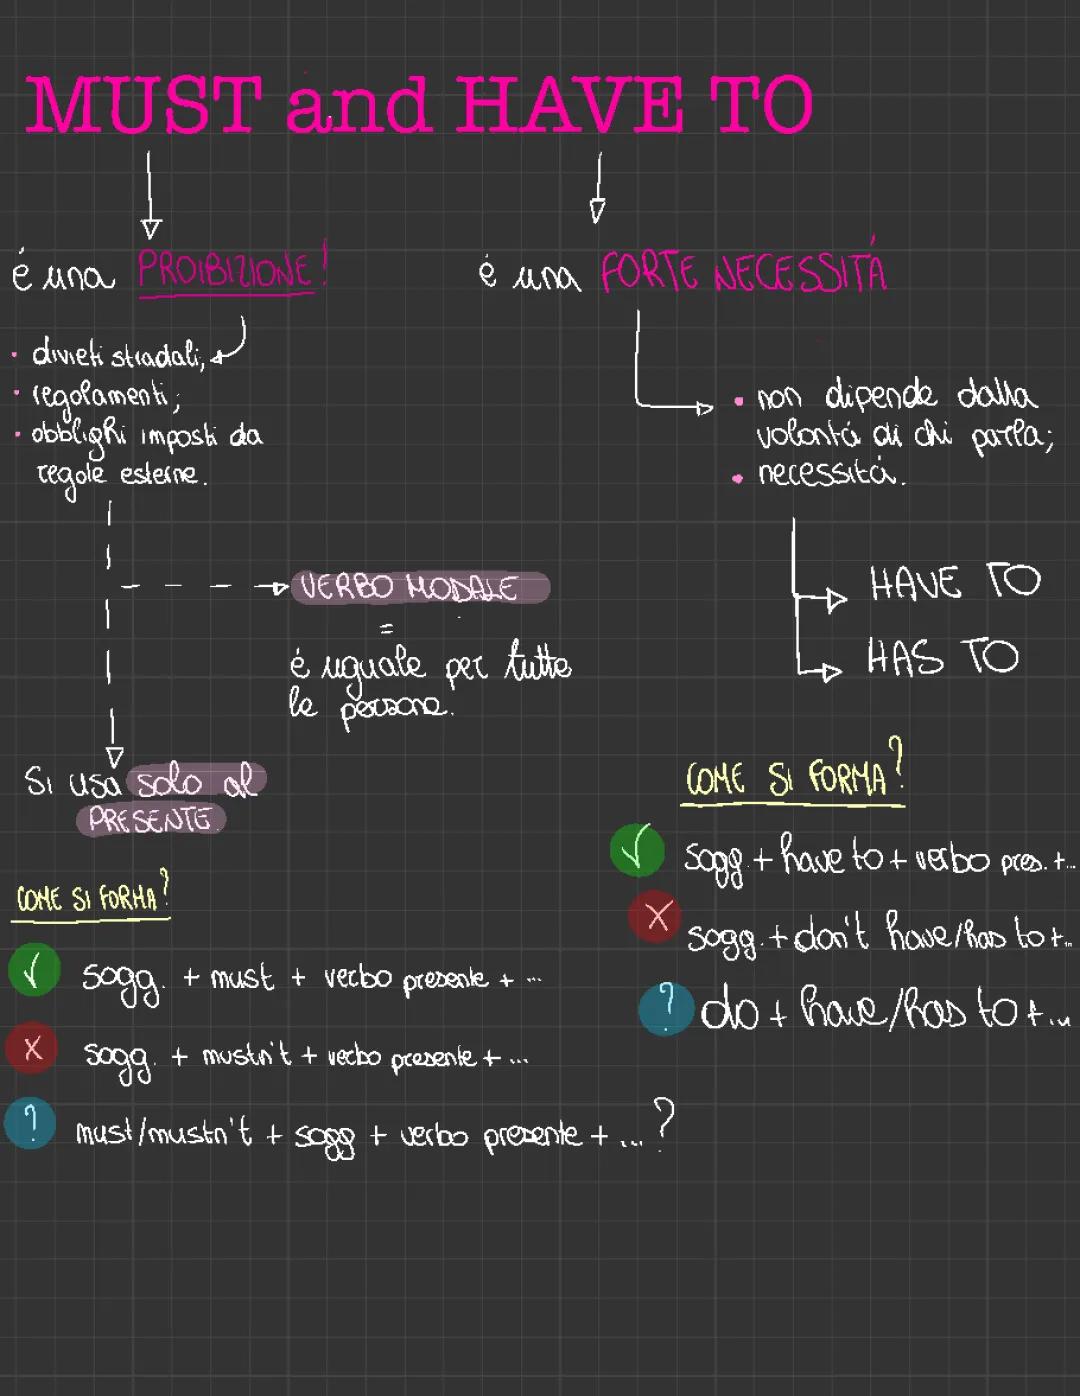 MUST and HAVE TO
é una PROIBIZIONE!
• divieti stradali,
• regolamenti;
• obblighi imposti da
regole esterne.
VERBO MODALE
=
é uguale per tutte
le persone.
Si usa solo al
PRESENTE.
COME SI FORMA?
✓ sogg. + must + verbo presente + ...
X sogg. + mustn't + verbo presente + ...
? must/mustn't + sogg + verbo presente + ... ?
é una FORTE NECESSITÁ
• non dipende dalla
volontá di chi parla;
• necessitá.
HAVE TO
HAS TO
COME SI FORMA?
✓ sogg. + have to + verbo pres. + ...
X sogg. + don't have/has to + ...
? do + have/has to + ...